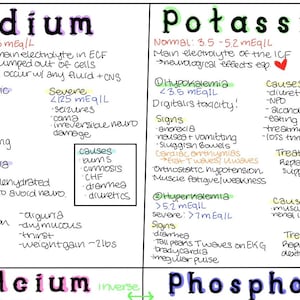 dium
mEq/L
main electrolyte in ECF
umped out of cells
occur w/ any fluid + CNS
Severe
<125 mEq/L
-seizures
-coma
-irreversible neuro
damage
causes
-burns
-cirrhosis
-CHF
-diarrhea
-diuretics
dehydrated
to avoid neuro
-oliguria
-dry mucous
-thirst
-weight gain ~2lbs
lcium
inverse
Potass
Normal: 3.5 - 5.2 mEq/L
Main electrolyte of the ICF
→neurological effects esp.
Hypokalemia
<3.5 mEq/L
Digitalis toxicity!
Signs
-anorexia
-nausea + vomiting
-sluggish bowels
-Cardiac arrhythmias
→flat T waves/U waves
-orthostatic hypotension
-Muscle fatigue/weakness
Cause
-diuret
-NPO
-alcohol
-eating
-treatme
-loss th
Treat
Rep
diet
Hyperkalemia
>5.2 mEq/L
severe: >7 mEq/L
Signs
-diarrhea
-Tall peaks T waves on EKG
-bradycardia
-irregular pulse
Cau
-musc
-renal
Treat
Rep
dext
Phospho